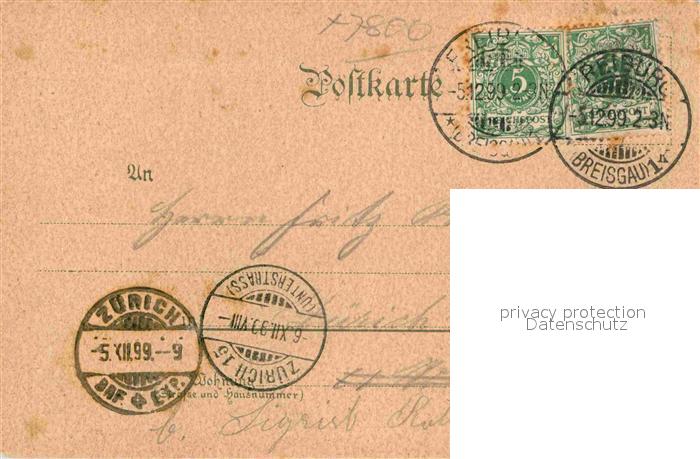 +7800
Postkarte
5
REICHSPOST
FREIBURG
-5.12.99.2-3N.
*(BREISGAU)
FREIBURG
-5.12.99.2-3N.
(BREISGAU) 14
An
Herrn Fritz
privacy protection
Datenschutz
(UNTERSTRASS)
-6.XII.99.VIII-
ZÜRICH 15
Zürich
ZÜRICH
-5.XII.99.-9
BRF. EXP.
Wohnung
(Straße und Hausnummer)
b. Sigrist